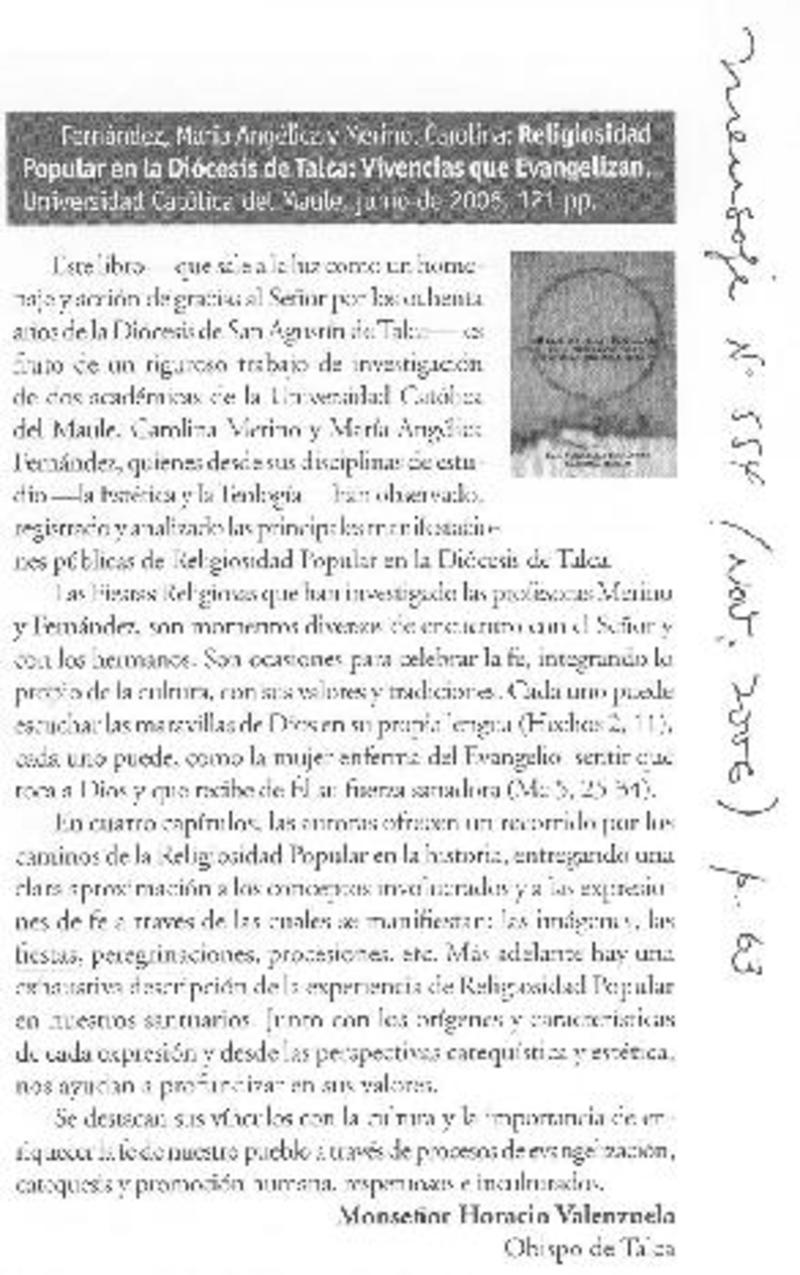 Fernández, María Angélica y Merino, Carolina: Religiosidad
Popular en la Diócesis de Talca: Vivencias que Evangelizan.
Universidad Católica del Maule, junio de 2006, 121 pp.
Este libro — que sale a la luz como un home-
naje y acción de gracias al Señor por los ochenta
años de la Diócesis de San Agustín de Talca— es
fruto de un riguroso trabajo de investigación
de dos académicas de la Universidad Católica
del Maule, Carolina Merino y María Angélica
Fernández, quienes desde sus disciplinas de estu-
dio —la Estética y la Teología— han observado,
registrado y analizado las principales manifestacio-
nes públicas de Religiosidad Popular en la Diócesis de Talca.
Las Fiestas Religiosas que han investigado las profesoras Merino
y Fernández, son momentos diversos de encuentro con el Señor y
con los hermanos. Son ocasiones para celebrar la fe, integrando lo
propio de la cultura, con sus valores y tradiciones. Cada uno puede
escuchar las maravillas de Dios en su propia lengua (Hechos 2, 11),
cada uno puede, como la mujer enferma del Evangelio, sentir que
toca a Dios y que recibe de Él su fuerza sanadora (Mc 5, 25-34).
En cuatro capítulos, las autoras ofrecen un recorrido por los
caminos de la Religiosidad Popular en la historia, entregando una
clara aproximación a los conceptos involucrados y a las expresio-
nes de fe a través de las cuales se manifiestan: las imágenes, las
fiestas, peregrinaciones, procesiones, etc. Más adelante hay una
exhaustiva descripción de la experiencia de Religiosidad Popular
en nuestros santuarios. Junto con los orígenes y características
de cada expresión y desde las perspectivas catequística y estética,
nos ayudan a profundizar en sus valores.
Se destacan sus vínculos con la cultura y la importancia de en-
riquecer la fe de nuestro pueblo a través de procesos de evangelización,
catequesis y promoción humana, respetuosos e inculturados.
Monseñor Horacio Valenzuela
Obispo de Talca
Mensaje N° 554 (Nov, 2006) p. 63